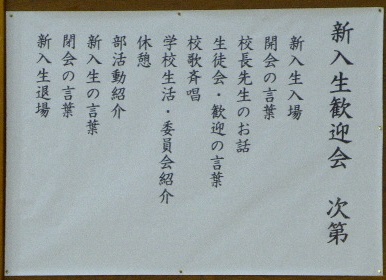 新入生歓迎会　次第
新入生入場
開会の言葉
校長先生のお話
生徒会・歓迎の言葉
校歌斉唱
学校生活・委員会紹介
休憩
部活動紹介
新入生の言葉
閉会の言葉
新入生退場